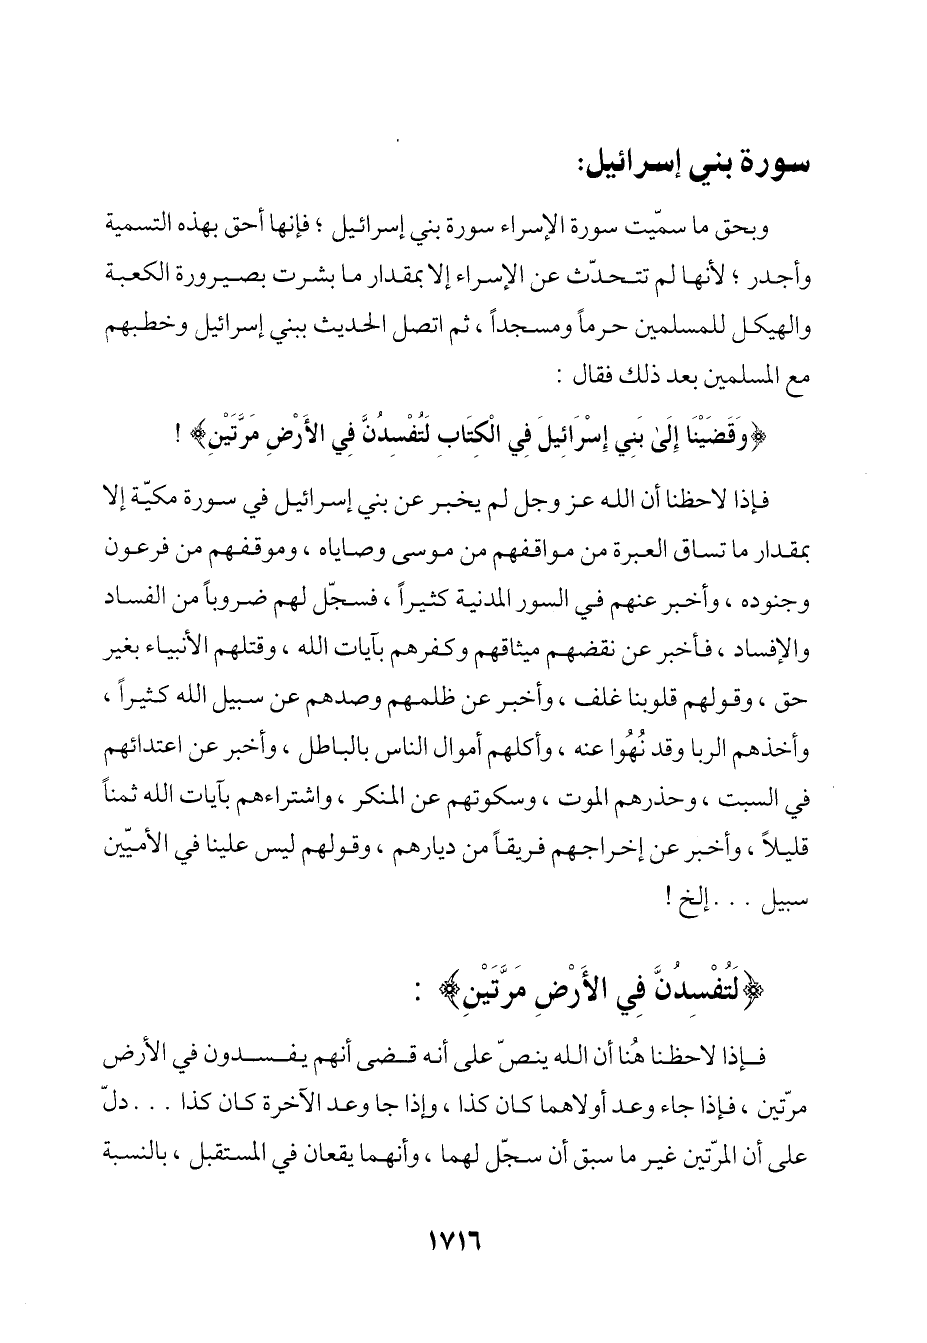 سورة بني إسرائيل:
وبحق ما سمّيت سورة الإسراء سورة بني إسرائيل ؛ فإنها أحق بهذه التسمية
وأجدر ؛ لأنها لم تتحدّث عن الإسراء إلا بمقدار ما بشرت بصيرورة الكعبة
والهيكل للمسلمين حرماً ومسجداً ، ثم اتصل الحديث ببني إسرائيل وخطبهم
مع المسلمين بعد ذلك فقال :
﴿وَقَضَيْنَا إِلَىٰ بَنِي إِسْرَائِيلَ فِي الْكِتَابِ لَتُفْسِدُنَّ فِي الأَرْضِ مَرَّتَيْنِ﴾ !
فإذا لاحظنا أن الله عز وجل لم يخبر عن بني إسرائيل في سورة مكيّة إلا
بمقدار ما تساق العبرة من مواقفهم من موسى وصاياه ، وموقفهم من فرعون
وجنوده ، وأخبر عنهم في السور المدنية كثيراً ، فسجّل لهم ضروباً من الفساد
والإفساد ، فأخبر عن نقضهم ميثاقهم وكفرهم بآيات الله ، وقتلهم الأنبياء بغير
حق ، وقولهم قلوبنا غلف ، وأخبر عن ظلمهم وصدهم عن سبيل الله كثيراً ،
وأخذهم الربا وقد نُهُوا عنه ، وأكلهم أموال الناس بالباطل ، وأخبر عن اعتدائهم
في السبت ، وحذرهم الموت ، وسكوتهم عن المنكر ، واشتراءهم بآيات الله ثمناً
قليلاً ، وأخبر عن إخراجهم فريقاً من ديارهم ، وقولهم ليس علينا في الأميّين
سبيل . . . إلخ !
﴿لَتُفْسِدُنَّ فِي الأَرْضِ مَرَّتَيْنِ﴾ :
فإذا لاحظنا هُنا أن الله ينصّ على أنه قضى أنهم يفسدون في الأرض
مرّتين ، فإذا جاء وعد أولاهما كان كذا ، وإذا جا وعد الآخرة كان كذا . . . دلّ
على أن المرّتين غير ما سبق أن سجّل لهما ، وأنهما يقعان في المستقبل ، بالنسبة
١٧١٦